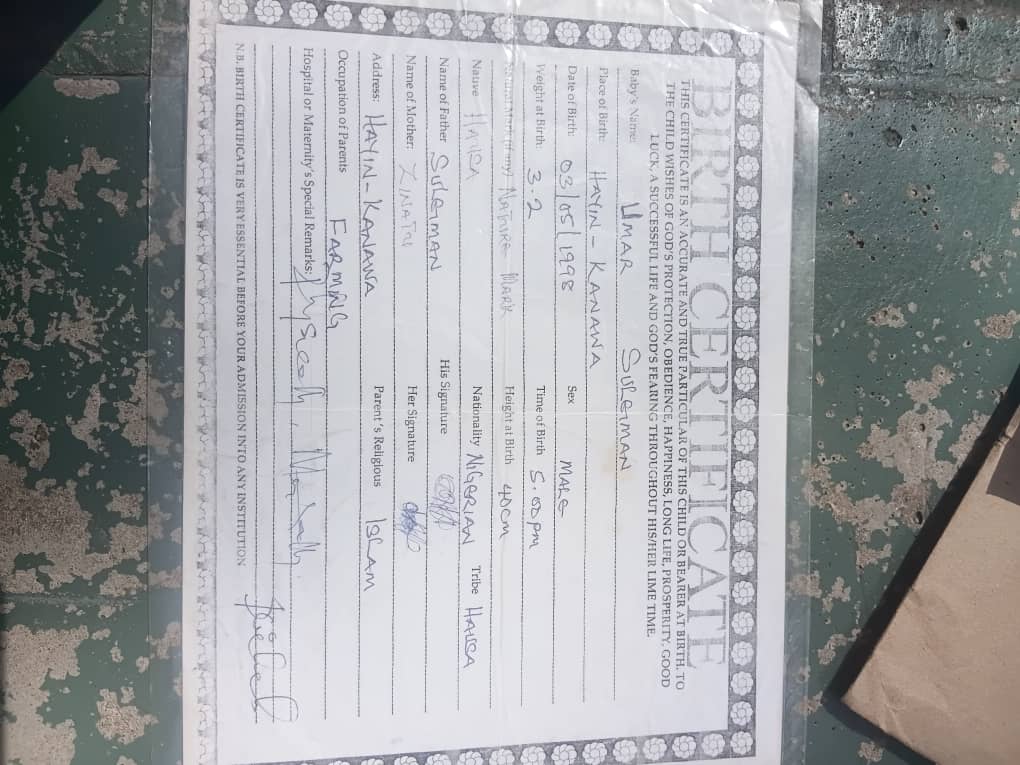 BIRTH CERTIFICATE
THIS CERTIFICATE IS AN ACCURATE AND TRUE PARTICULAR OF THIS CHILD OR BEARER AT BIRTH. TO
THE CHILD WISHES OF GOD'S PROTECTION, OBEDIENCE, HAPPINESS, LONG LIFE, PROSPERITY, GOOD
LUCK, A SUCCESSFUL LIFE AND GOD'S FEARING THROUGHOUT HIS/HER LIME TIME.
Baby's Name: UMAR SULEIMAN
Place of Birth: HAYIN-KANAWA
Date of Birth: 03/05/1998 Sex MALE
Weight at Birth: 3.2 Time of Birth 5.00pm
Mark (if any) NATURE MARK Height at Birth 40cm
Native HAUSA Nationality NIGERIAN Tribe HAUSA
Name of Father SULEIMAN His Signature
Name of Mother: ZINATU Her Signature
Address: HAYIN-KANAWA Parent's Religious ISLAM
Occupation of Parents FARMING
Hospital or Maternity's Special Remarks:
N.B. BIRTH CERTIFICATE IS VERY ESSENTIAL BEFORE YOUR ADMISSION INTO ANY INSTITUTION